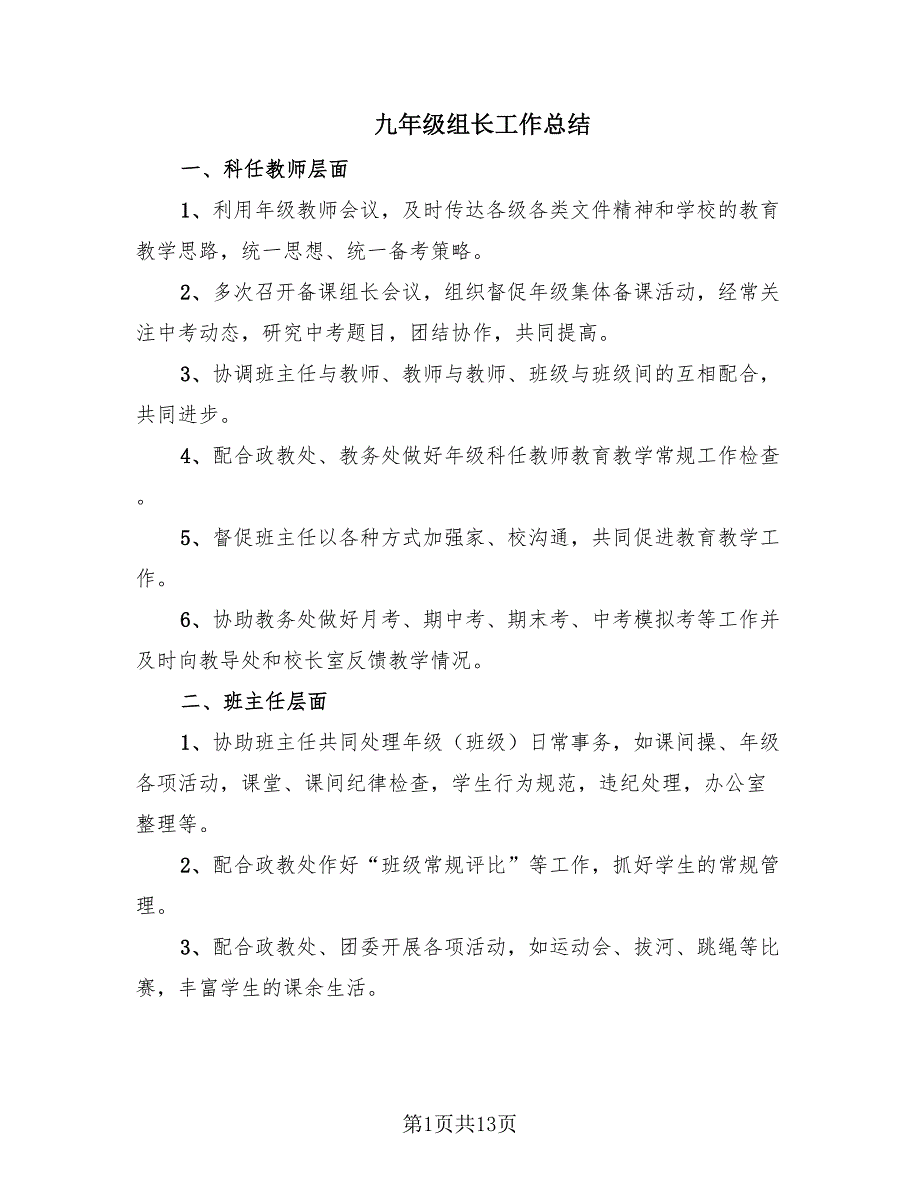 九年级组长工作总结
一、科任教师层面
1、利用年级教师会议，及时传达各级各类文件精神和学校的教育
教学思路，统一思想、统一备考策略。
2、多次召开备课组长会议，组织督促年级集体备课活动，经常关
注中考动态，研究中考题目，团结协作，共同提高。
3、协调班主任与教师、教师与教师、班级与班级间的互相配合，
共同进步。
4、配合政教处、教务处做好年级科任教师教育教学常规工作检查
。
5、督促班主任以各种方式加强家、校沟通，共同促进教育教学工
作。
6、协助教务处做好月考、期中考、期末考、中考模拟考等工作并
及时向教导处和校长室反馈教学情况。
二、班主任层面
1、协助班主任共同处理年级（班级）日常事务，如课间操、年级
各项活动，课堂、课间纪律检查，学生行为规范，违纪处理，办公室
整理等。
2、配合政教处作好“班级常规评比”等工作，抓好学生的常规管
理。
3、配合政教处、团委开展各项活动，如运动会、拔河、跳绳等比
赛，丰富学生的课余生活。
第1页共13页